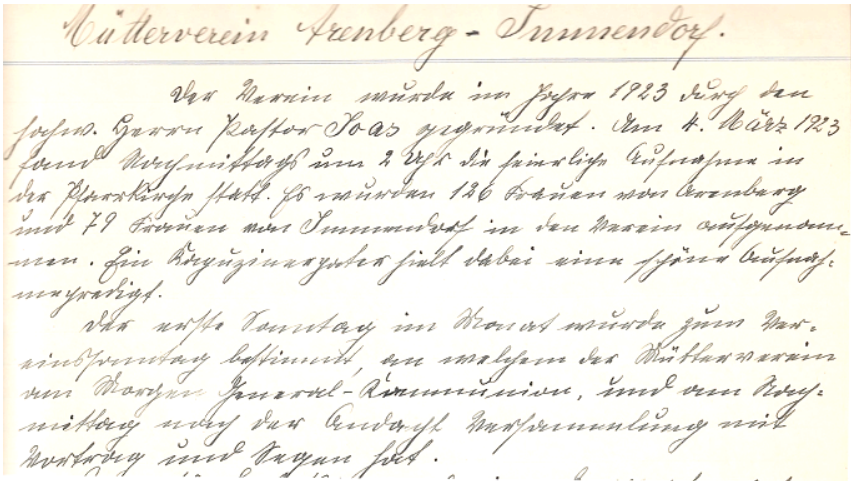 Mütterverein Arenberg - Immendorf.
Der Verein wurde im Jahre 1923 durch den
hochw. Herrn Pastor Joas gegründet. Am 4. März 1923
fand Nachmittags um 2 Uhr die feierliche Aufnahme in
der Pfarrkirche statt. Es wurden 126 Frauen von Arenberg
und 79 Frauen von Immendorf in den Verein aufgenom-
men. Ein Kapuzinerpater hielt dabei eine schöne Aufnah-
mepredigt.
Der erste Sonntag im Monat wurde zum Ver-
einssonntag bestimmt, an welchem der Mütterverein
am Morgen General-Kommunion, und am Nach-
mittag nach der Andacht Versammlung mit
Vortrag und Segen hat.